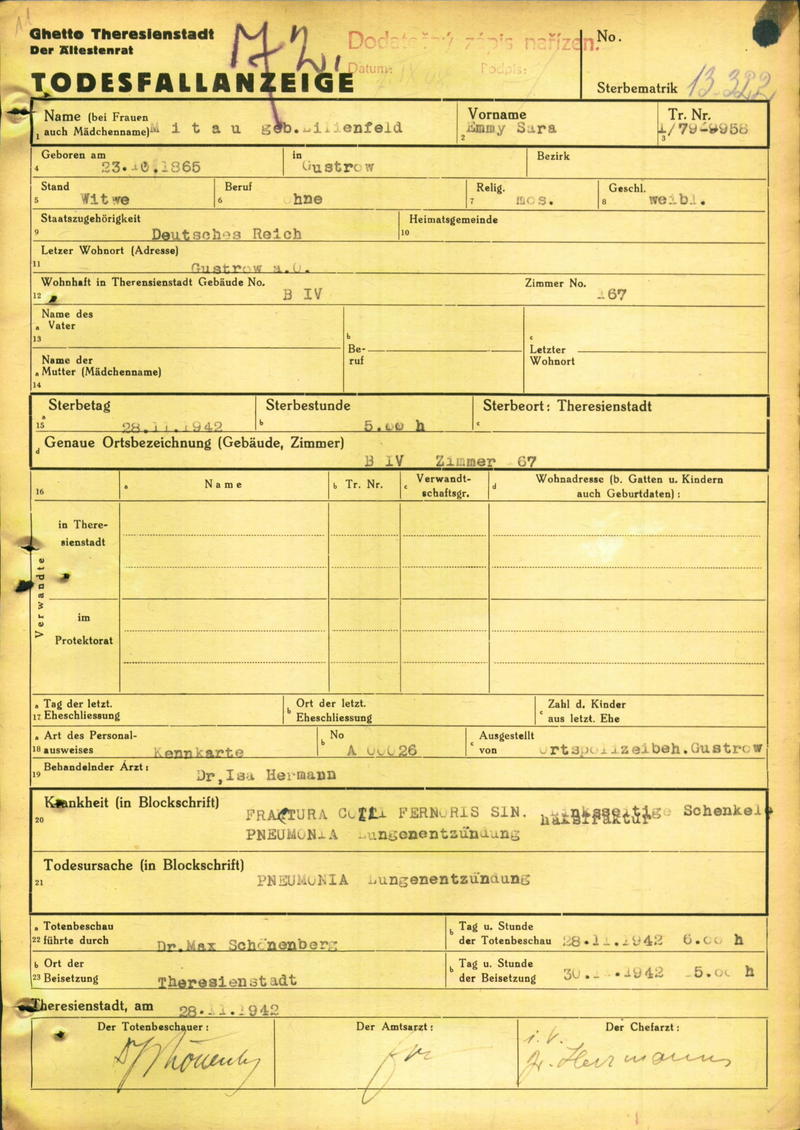 Ghetto Theresienstadt
Der Ältestenrat
Dodatečný zápis nařízen.
Datum: Podpis:
No.
TODESFALLANZEIGE
Sterbematrik 13.322
Name (bei Frauen
1 auch Mädchenname) Mitau geb. Lilienfeld
Vorname
2 Emmy Sara
Tr. Nr.
3
Geboren am
4 23.10.1865
in Gustrow
Bezirk
Stand
5 Witwe
Beruf
6 ohne
Relig.
7 mos.
Geschl.
8 weibl.
Staatszugehörigkeit
9 Deutsches Reich
Heimatsgemeinde
10
Letzer Wohnort (Adresse)
11 Gustrow
Wohnhaft in Therensienstadt Gebäude No.
12 B IV
Zimmer No.
67
Name des
a Vater
13
b Be-
ruf
c Letzter
Wohnort
Name der
a Mutter (Mädchenname)
14
a Sterbetag
15 28.11.1942
Sterbestunde
b 5.00 h
Sterbeort: Theresienstadt
c
d Genaue Ortsbezeichnung (Gebäude, Zimmer)
B IV Zimmer 67
16
a Name
b Tr. Nr.
c Verwandt-
schaftsgr.
d Wohnadresse (b. Gatten u. Kindern
auch Geburtdaten):
Verwandte
in There-
sienstadt
im
Protektorat
a Tag der letzt.
17 Eheschliessung
b Ort der letzt.
Eheschliessung
c Zahl d. Kinder
aus letzt. Ehe
a Art des Personal-
18 ausweises Kennkarte
b No
A 00026
c Ausgestellt
von Ortspolizeibeh.Gustrow
19 Behandelnder Arzt:
Dr,Isa Hermann
Krankheit (in Blockschrift)
20 FRAKTURA COLLI FERNORIS SIN. Schenkel
halsfraktur
PNEUMONIA Lungenentzündung
Todesursache (in Blockschrift)
21 PNEUMONIA Lungenentzündung
a Totenbeschau
22 führte durch Dr.Max Schönenberg
b Tag u. Stunde
der Totenbeschau 28.11.1942 6.00 h
b Ort der
23 Beisetzung Theresienstadt
b Tag u. Stunde
der Beisetzung 30. .1942 5.00 h
Theresienstadt, am 28.11.1942
Der Totenbeschauer:
Der Amtsarzt:
Der Chefarzt:
i. V.